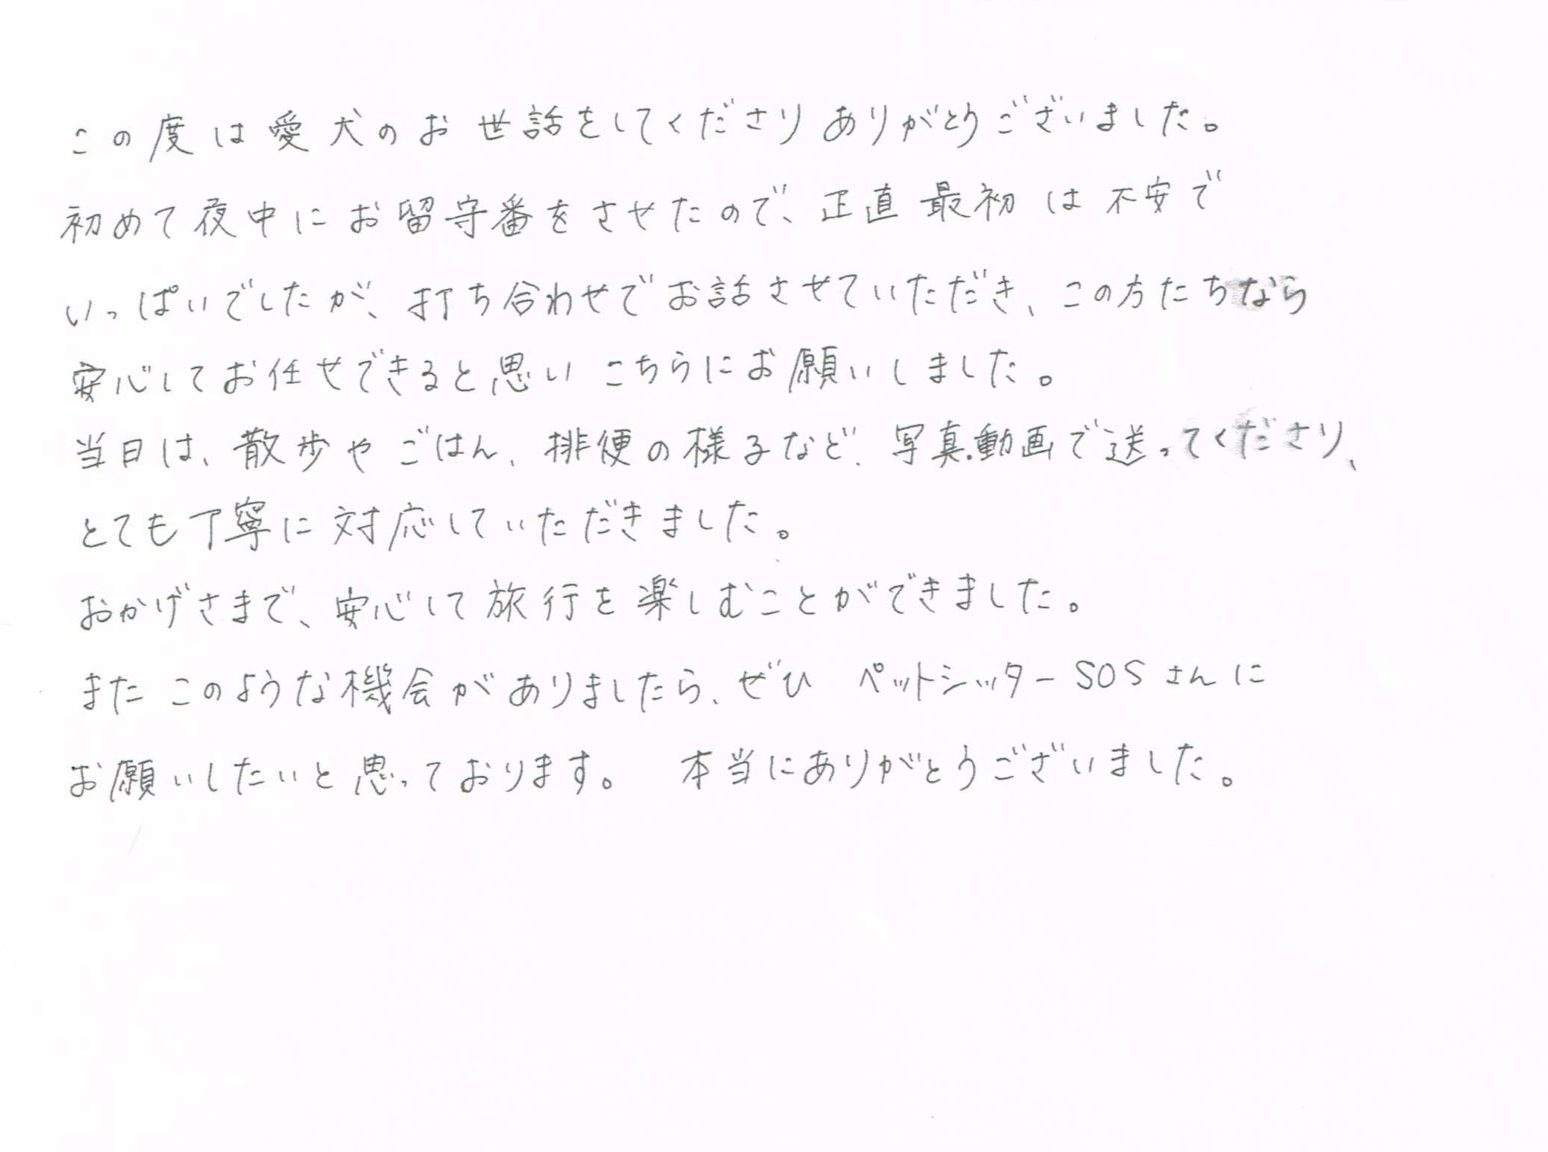 この度は愛犬のお世話をしてくださりありがとうございました。
初めて夜中にお留守番をさせたので、正直最初は不安で
いっぱいでしたが、打ち合わせでお話させていただき、この方たちなら
安心してお任せできると思いこちらにお願いしました。
当日は、散歩やごはん、排便の様子など、写真・動画で送ってくださり、
とても丁寧に対応していただきました。
おかげさまで、安心して旅行を楽しむことができました。
またこのような機会がありましたら、ぜひ ペットシッターSOSさんに
お願いしたいと思っております。 本当にありがとうございました。